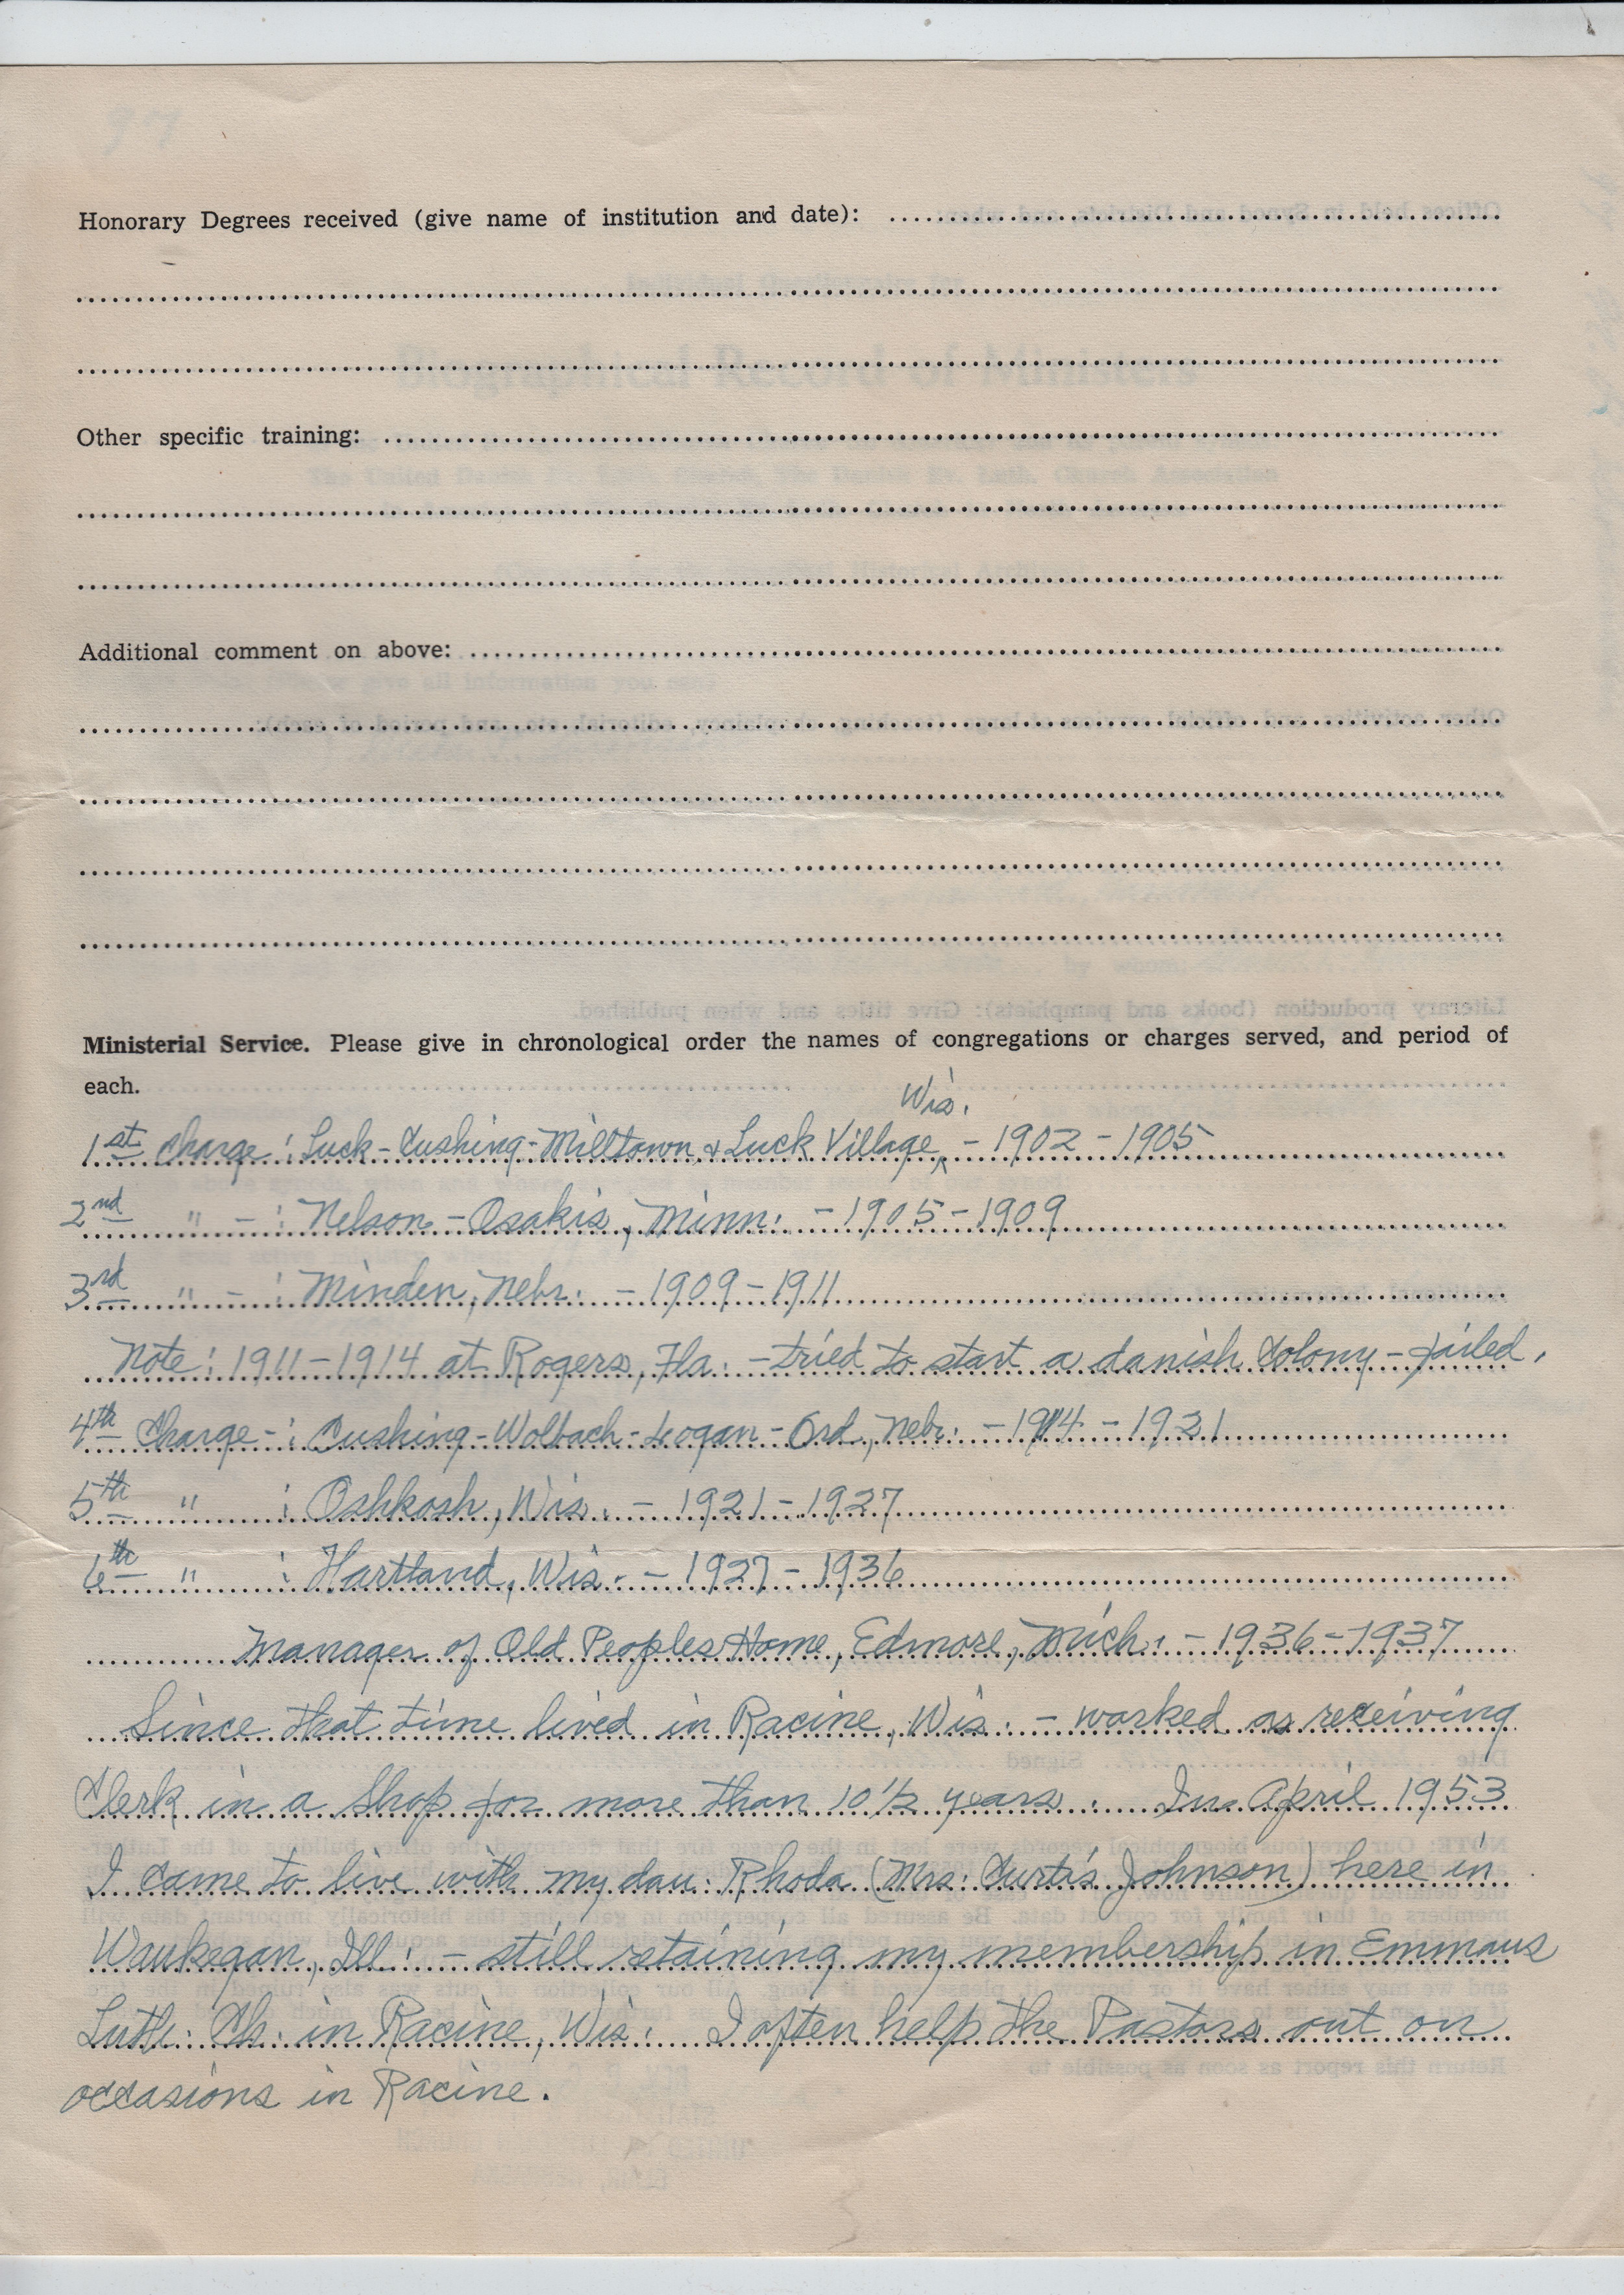 Honorary Degrees received (give name of institution and date):
Other specific training:
Additional comment on above:
Ministerial Service. Please give in chronological order the names of congregations or charges served, and period of
each.
Wis.
1st Charge: Luck-Cushing-Milltown & Luck Village, - 1902 - 1905
2nd " - : Nelson - Osakis, Minn. - 1905 - 1909
3rd " - : Minden, Nebr. - 1909 - 1911
Note: 1911-1914 at Rogers, Fla. - tried to start a danish Colony - failed.
4th Charge - : Cushing-Wolbach-Logan-Ord, Nebr. - 1914 - 1921
5th " : Oshkosh, Wis. - 1921 - 1927
6th " : Hartland, Wis. - 1927 - 1936
Manager of Old Peoples Home, Edmore, Mich. - 1936-1937
Since that time lived in Racine, Wis. - worked as receiving
Clerk in a Shop for more than 10 1/2 years. In April 1953
I came to live with my dau. Rhoda (Mrs. Curtis Johnson) here in
Waukegan, Ill. - still retaining my membership in Emmaus
Luth. Ch. in Racine, Wis. I often help the Pastors out on
occasions in Racine.